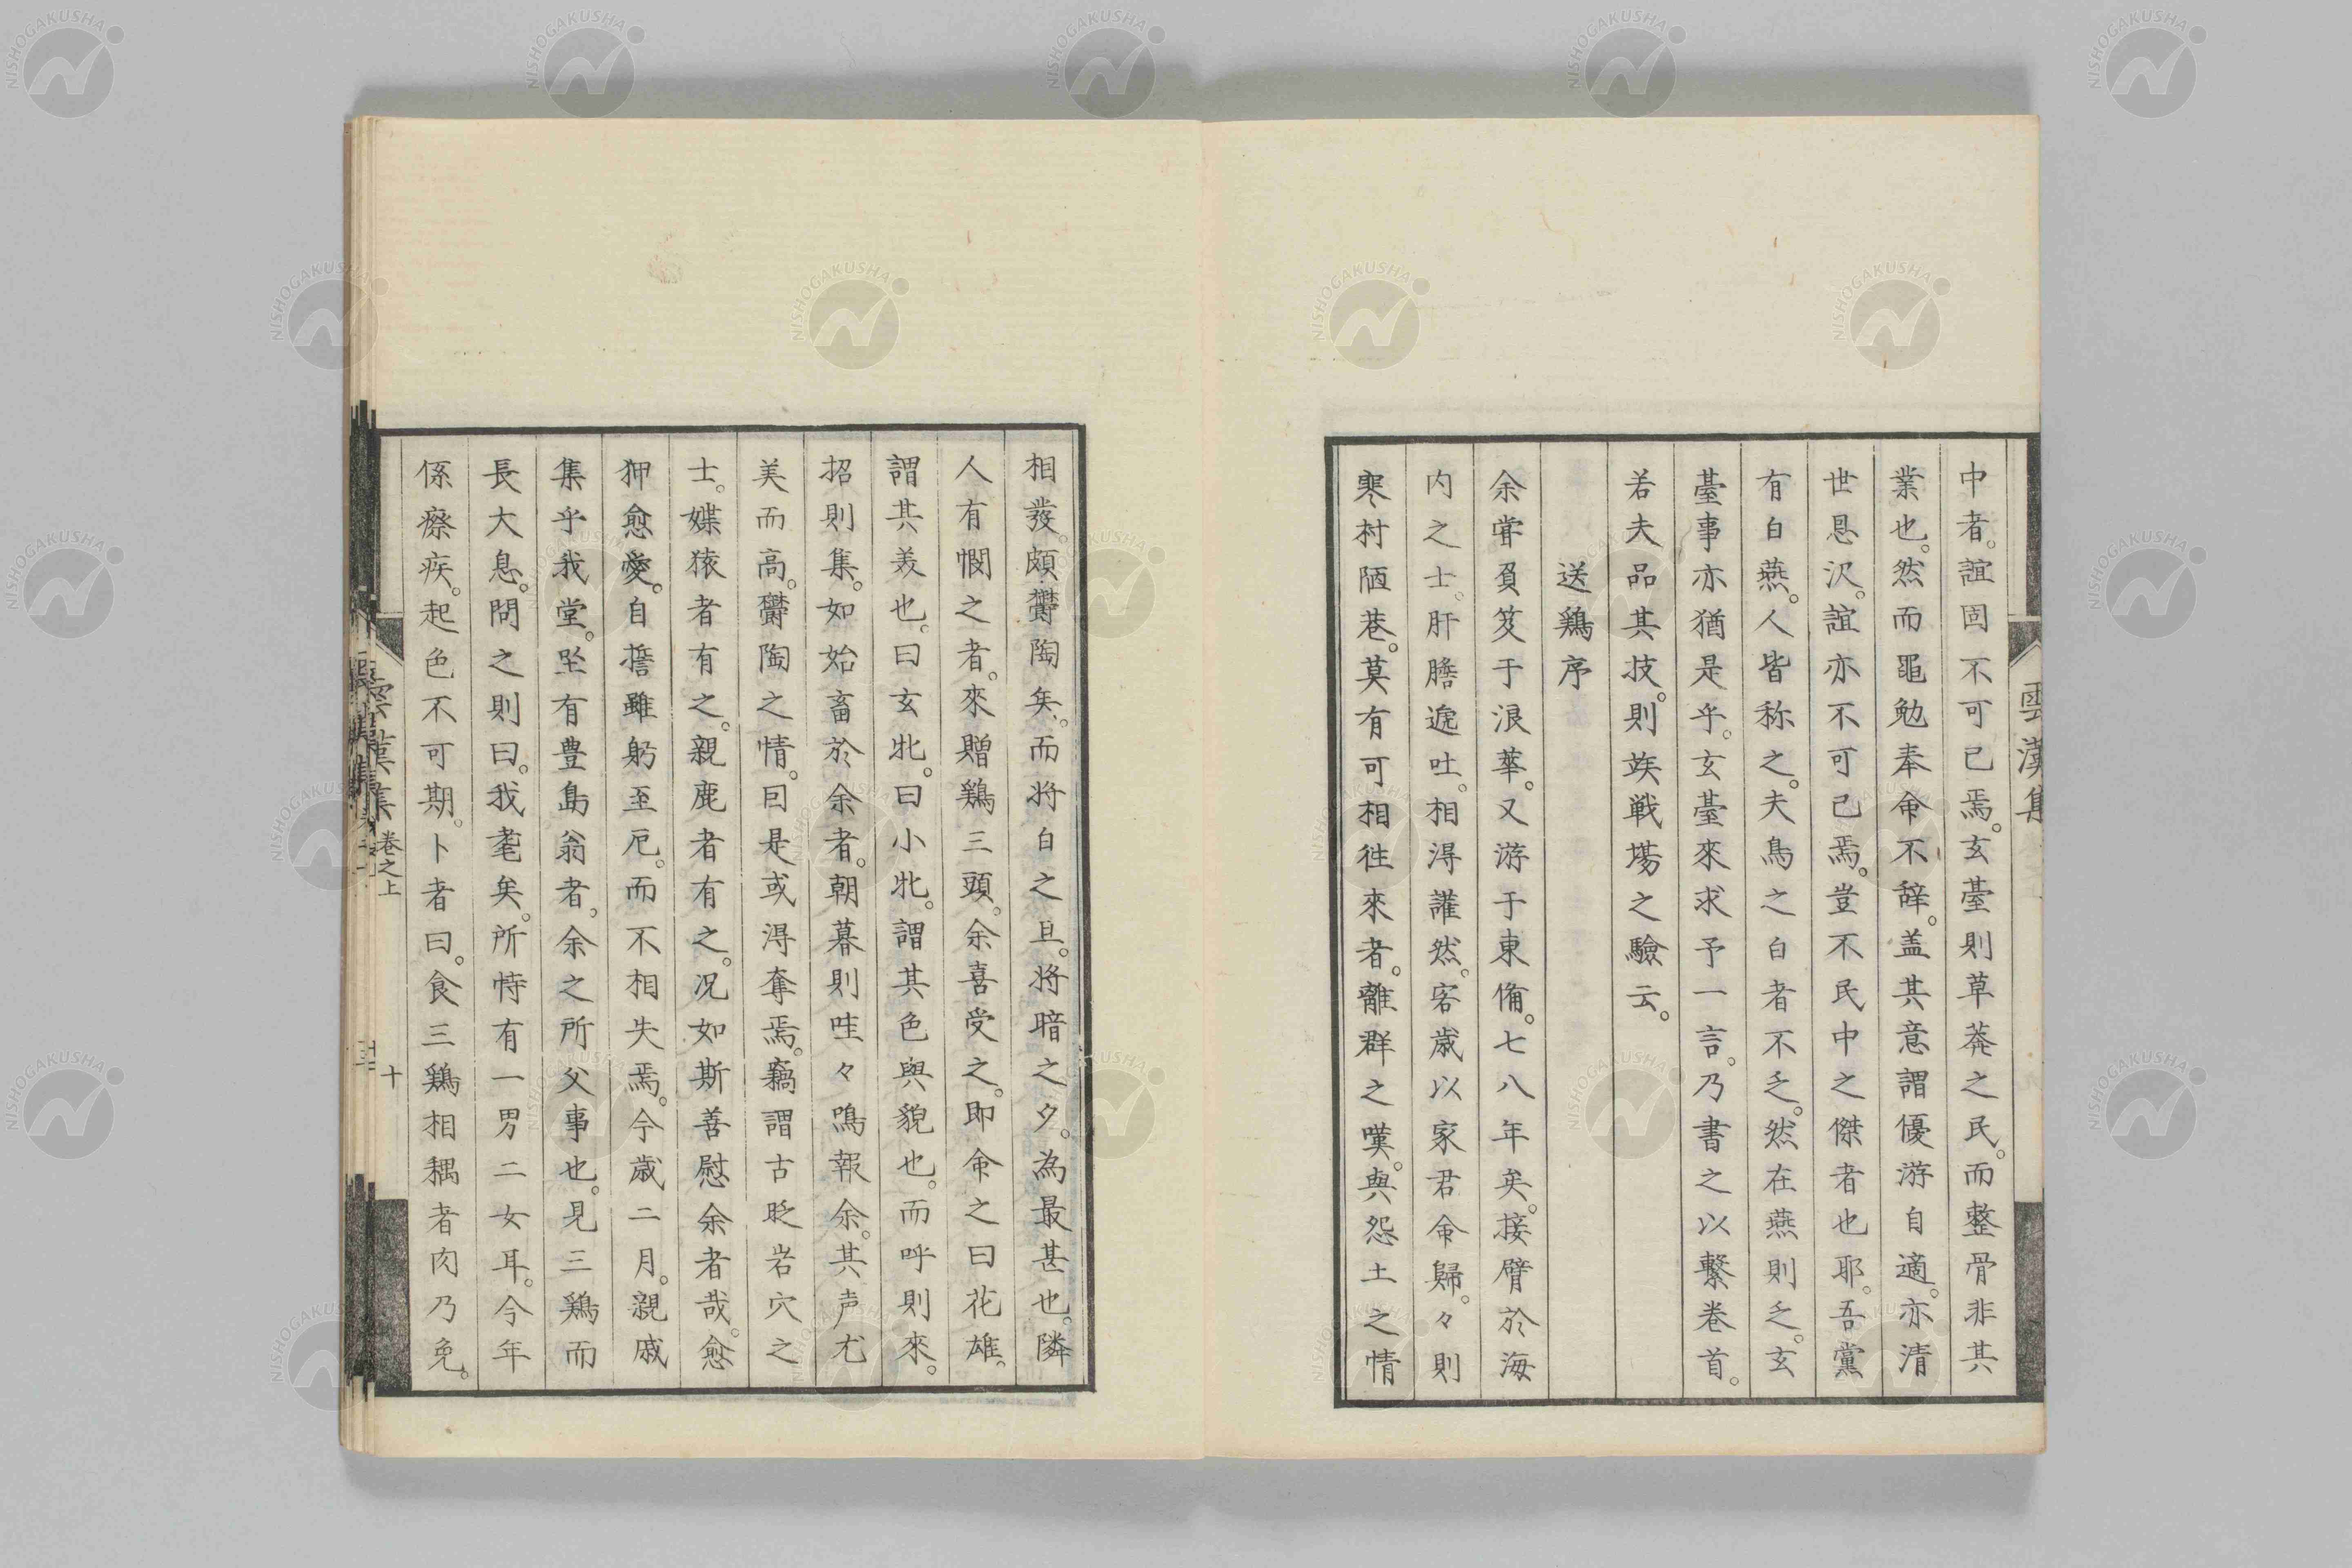 中者。誼固不可已焉。玄臺則草莽之民。而整骨非其
業也。然而黽勉奉命不辞。盖其意謂優游自適。亦清
世恩沢。誼亦不可已焉。豈不民中之傑者也耶。吾黨
有白燕。人皆称之。夫鳥之白者不乏。然在燕則乏。玄
臺事亦猶是乎。玄臺來求予一言。乃書之以繫卷首。
若夫品其技。則俟戦場之驗云。
送鶏序
余甞負笈于浪華。又游于東備。七八年矣。接臂於海
内之士。肝膽遞吐。相得讙然。客歳以家君命歸。々則
寒村陋巷。莫有可相往來者。離群之嘆。與怨土之情
相發。頗欝陶矣。而将白之旦。将暗之夕。為最甚也。隣
人有憫之者。來贈鶏三頭。余喜受之。即命之曰花雄。
謂其美也。曰玄牝。曰小牝。謂其色與貌也。而呼則來。
招則集。如始畜於余者。朝暮則哇々鳴報余。其声尤
美而高。欝陶之情。回是或得奪焉。竊謂古昔岩穴之
士。媒猿者有之。親鹿者有之。况如斯善慰余者哉。愈
狎愈愛。自擔雖躬至厄。而不相失焉。今歳二月。親戚
集乎我堂。坐有豊島翁者。余之所父事也。見三鶏而
長大息。問之則曰。我耄矣。所恃有一男二女耳。今年
係瘵疾。起色不可期。卜者曰。食三鶏相耦者肉乃免。
雲漢集
雲漢集 卷之上 十
NISHOGAKUSHA